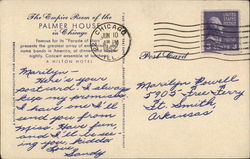 The Empire Room of the
PALMER HOUSE
in Chicago
Famous for its "Parade of
presents the greatest array of
name bands in America, at
nightly. Concert ensemble at
A HILTON HOTEL
CHICAGO
JUN 10
ILL.
Post Card
Marilyn -
Here is your
postcard. I always
keep my promises
I have one I'll
send you from
Miss. Have fun
and I'll be see-
ing you kiddo.
Love,
Sandy
Marilyn Powell
5905 Free Ferry
Ft. Smith
Arkansas